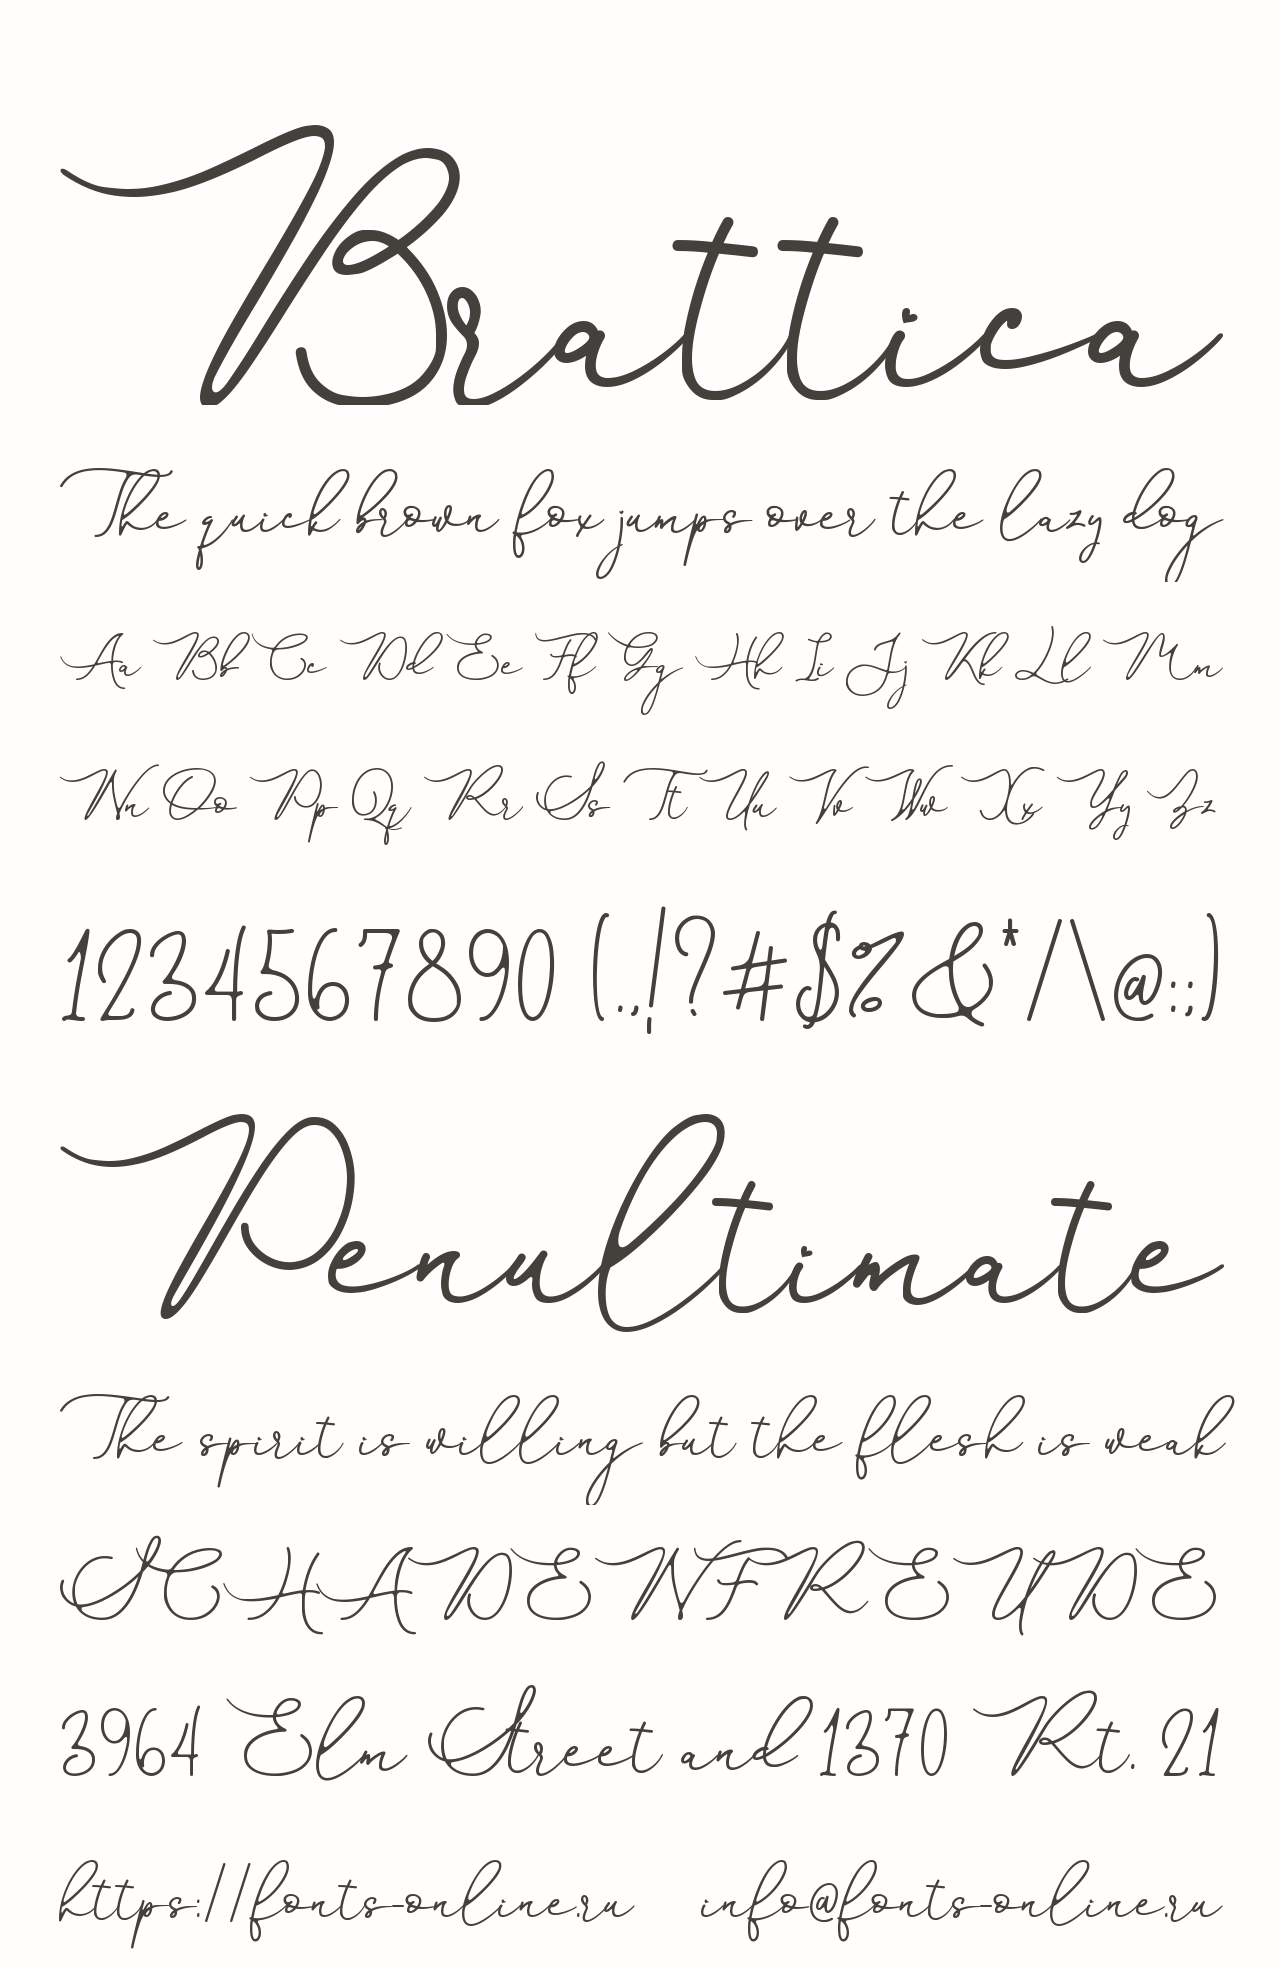 Brattica
The quick brown fox jumps over the lazy dog
Aa Bb Cc Dd Ee Ff Gg Hh Ii Jj Kk Ll Mm
Nn Oo Pp Qq Rr Ss Tt Uu Vv Ww Xx Yy Zz
1234567890 (.,!?#$%&*/\@:;)
Penultimate
The spirit is willing but the flesh is weak
SCHADENFREUDE
3964 Elm Street and 1370 Rt. 21
https://fonts-online.ru info@fonts-online.ru